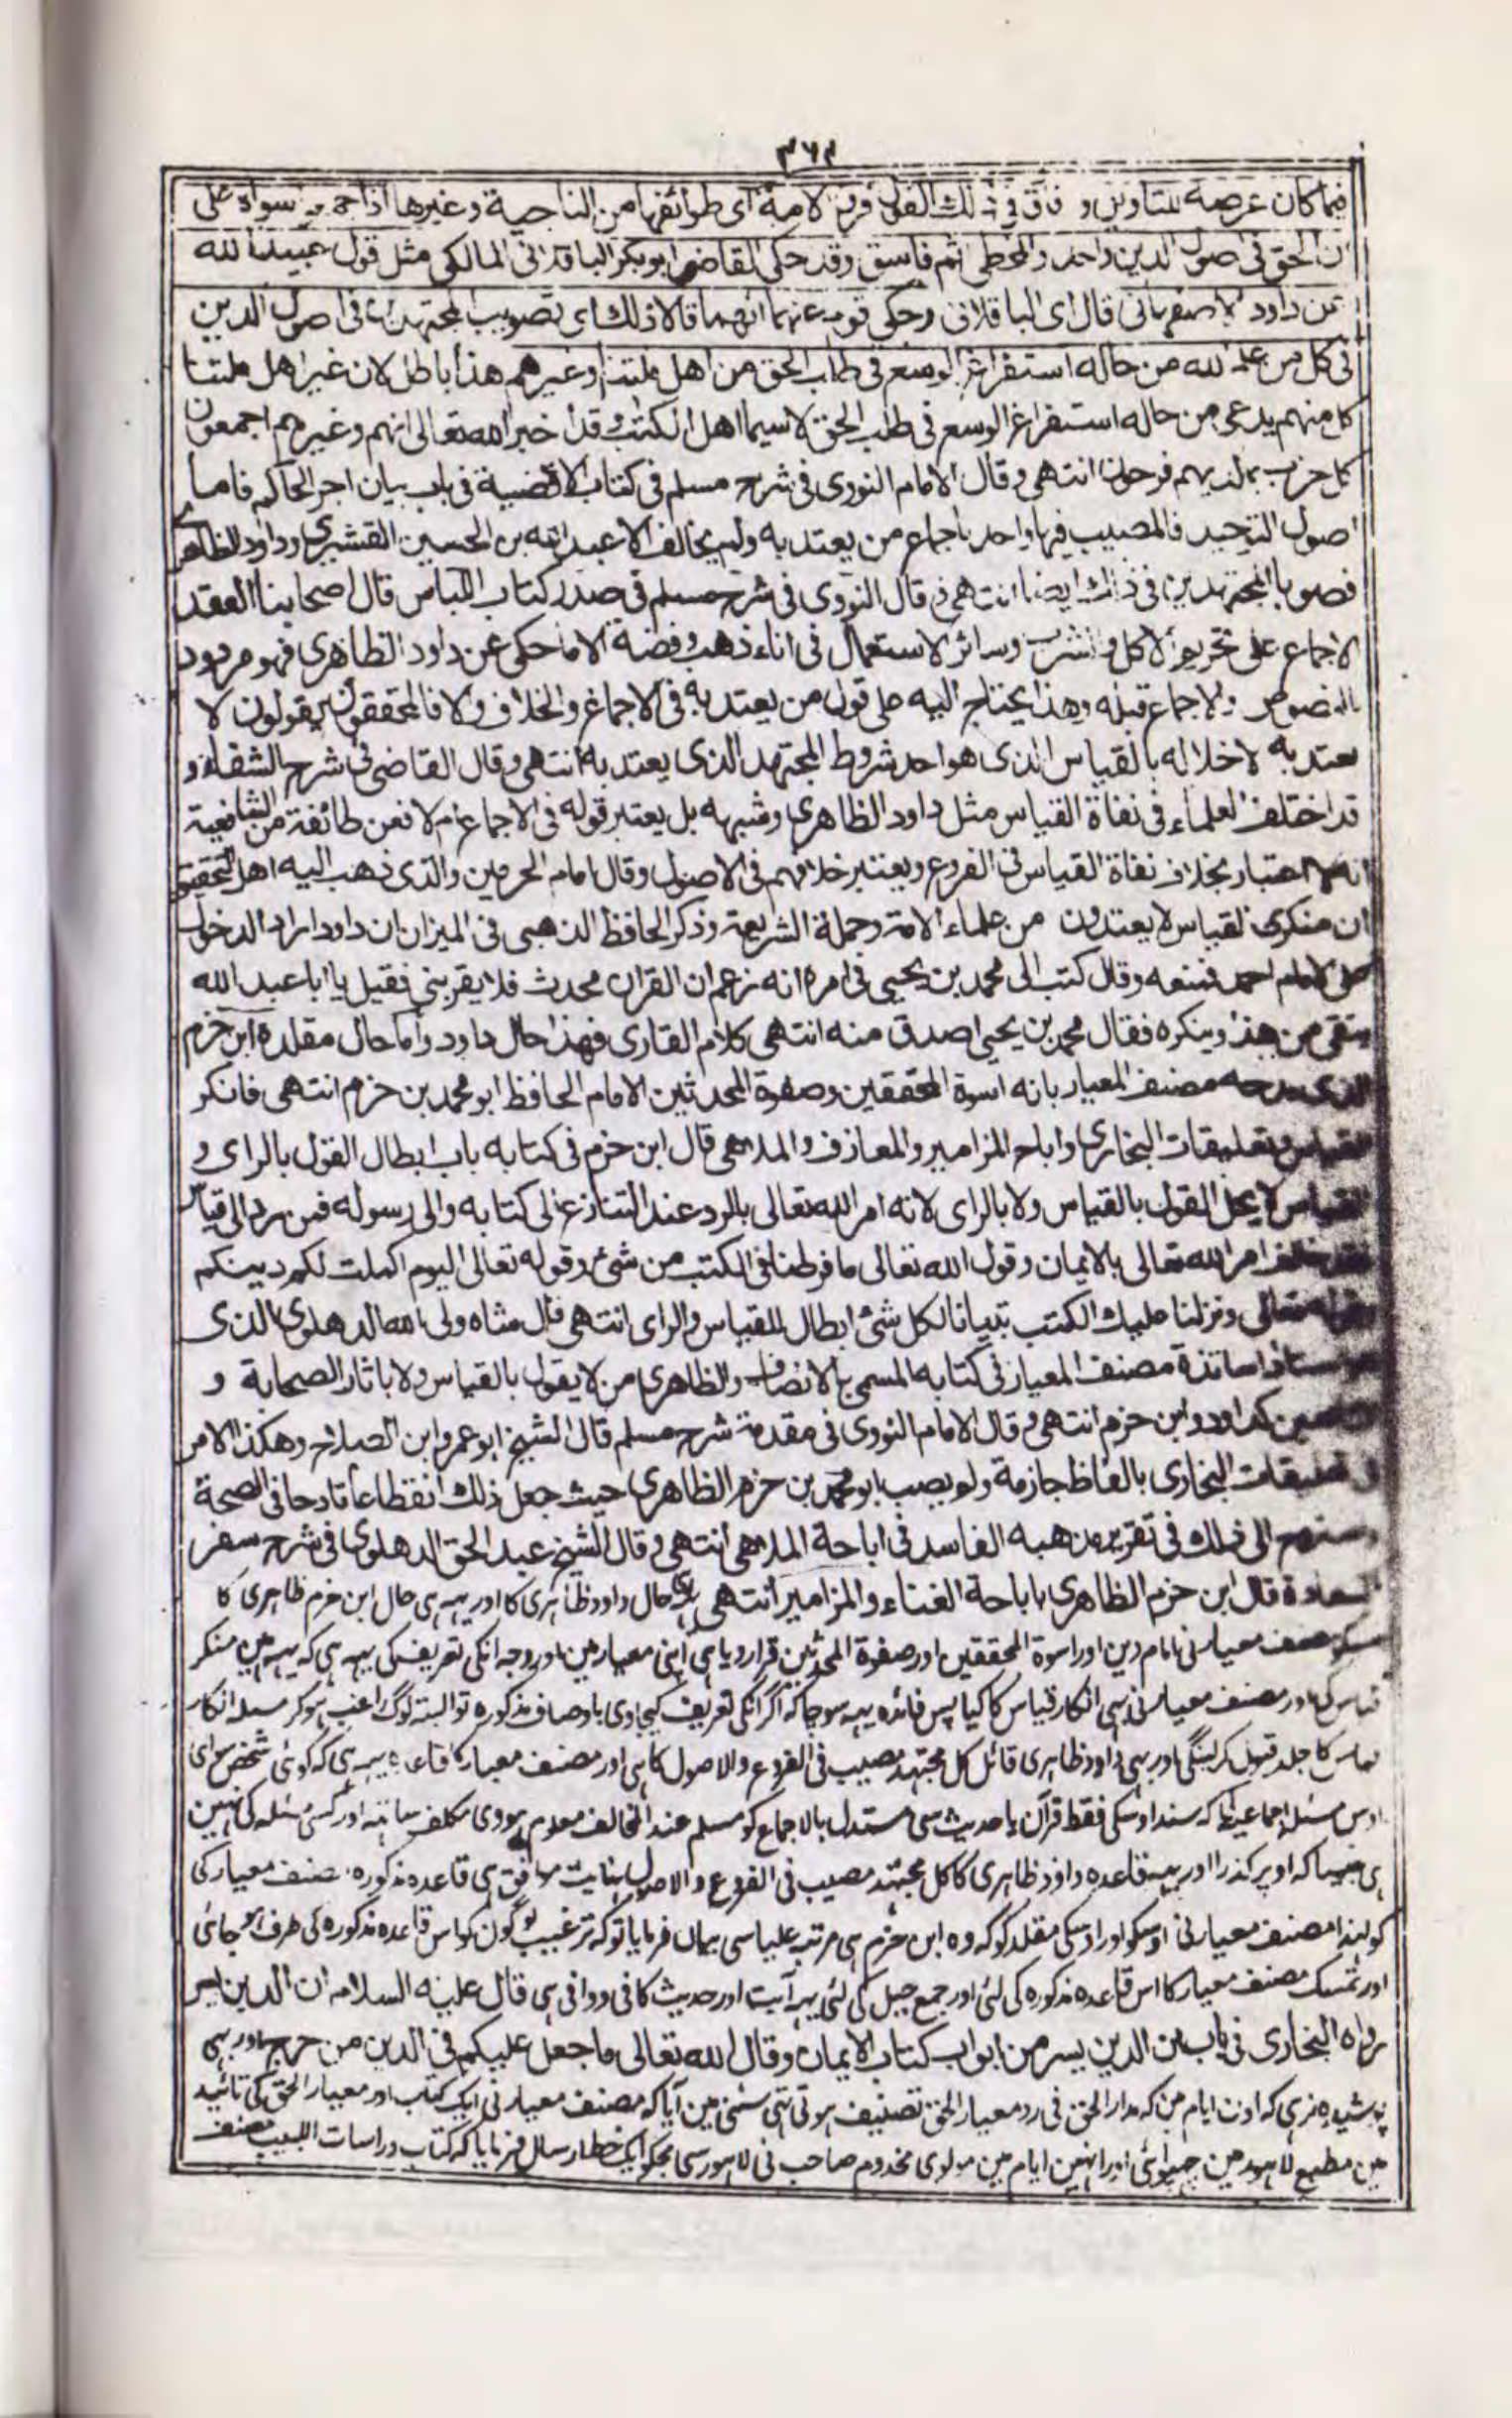 ۳۶۲
فيما كان عرضة للتاويل و فارق فى ذلك القول فرق الامة اى طوائفها من الناجية وغيرها اذا جمعوا سواه على
ان الحق فى اصول الدين واحد والمخطى اثم فاسق وقد حكى القاضى ابو بكر الباقلانى المالكى مثل قول عبيد الله
عن داود الاصفهانى قال اى الباقلانى وحكى قوم عنهما انهما قالا ذلك اى تصويب المجتهدين فى اصول الدين
فى كل من علم الله من حاله استفراغ الوسع فى طلب الحق من اهل ملتنا وغيرهم هذا باطل لان غير اهل ملتنا
كل منهم يدعى من حاله استفراغ الوسع فى طلب الحق لا سيما اهل الكتب وقد اخبر الله تعالى انهم وغيرهم اجمعون
كل حزب بما لديهم فرحون انتهى وقال الامام النووى فى شرح مسلم فى كتاب الاقضية فى باب بيان اجر الحاكم فاما
اصول التوحيد فالمصيب فيها واحد باجماع من يعتد به ولم يخالف الا عبد الله بن الحسين القشيرى وداود الظاهرى
فصوبا المجتهدين فى ذلك ايضا انتهى و قال النووى فى شرح مسلم فى صدر كتاب اللباس قال اصحابنا انعقد
الاجماع على تحريم الاكل والشرب وسائر الاستعمال فى اناء ذهب وفضة الا ما حكى عن داود الظاهرى فهو مردود
بالنصوص والاجماع قبله وهذا يحتاج اليه على قول من يعتد به فى الاجماع والخلاف والا فالمحققون يقولون لا
يعتد به لاخلاله بالقياس الذى هو احد شروط المجتهد الذى يعتد به انتهى وقال القاضى فى شرح الشفاء و
قد اختلف العلماء فى نفاة القياس مثل داود الظاهرى وشبهه بل يعتبر قوله فى الاجماع ام لا فعن طائفة من الشافعية
انه لا اعتبار بخلاف نفاة القياس فى الفروع ويعتبر خلافهم فى الاصول وقال امام الحرمين والذى ذهب اليه اهل التحقيق
ان منكرى القياس لا يعتدون من علماء الامة وحملة الشريعة وذكر الحافظ الذهبى فى الميزان ان داود اراد الدخول
على الامام احمد فمنعه وقال كتب الى محمد بن يحيى فى امره انه زعم ان القران محدث فلا يقربنى فقيل يا ابا عبد الله
ينتفى من هذا وينكره فقال محمد بن يحيى اصدق منه انتهى كلام القارى فهذا حال داود واما حال مقلده ابن حزم
الذى مدحه مصنف المعيار بانه اسوة المحققين وصفوة المحدثين الامام الحافظ ابو محمد بن حزم انتهى فانكر
القياس وتعليقات البخارى واباح المزامير والمعازف والملاهى قال ابن حزم فى كتابه باب ابطال القول بالراى و
القياس لا يحل القول بالقياس ولا بالراى لانه امر الله تعالى بالرد عند التنازع الى كتابه والى رسوله فمن رد الى قياس
فقد خالف امر الله تعالى بالايمان وقول الله تعالى ما فرطنا فى الكتب من شئ وقوله تعالى اليوم اكملت لكم دينكم
وقوله تعالى ونزلنا عليك الكتب تبيانا لكل شئ ابطال للقياس والراى انتهى قال شاه ولى الله الدهلوى الذى
استاذ اساتذة مصنف المعيار فى كتابه المسمى بالانصاف والظاهرى من لا يقول بالقياس ولا باثار الصحابة و
التابعين كداود وابن حزم انتهى و قال الامام النووى فى مقدمة شرح مسلم قال الشيخ ابو عمرو ابن الصلاح وهكذا الامر
فى تعليقات البخارى بالفاظ جازمة ولم يصب ابو محمد بن حزم الظاهرى حيث جعل ذلك انقطاعا قادحا فى الصحة
الى ذلك فى تقرير مذهبه الفاسد فى اباحة الملاهى انتهى و قال الشيخ عبد الحق الدهلوى فى شرح سفر
السعادة قال ابن حزم الظاهرى باباحة الغناء والمزامير انتهى حال داود ظاہری کا اور یہہ ہی حال ابن حزم ظاہری کا
مصنف معیار نی امام دین اور اسوة المحققین اور صفوة المحدثین قرار دیا ہی اپنی معیار مین اور وجہ انکی تعریف کی یہہ ہی کہ یہہ مین منکر
قیاس کی اور مصنف معیار نی بہی انکار قیاس کا کیا پس فائدہ یہہ سوجا کہ اگر انکی تعریف کیجاوی باوصاف مذکورہ تو البتہ لوگ راغب ہو کر مسئلہ انکار
قیاس کا جلد قبول کر لینگی اور بہی داود ظاہری قائل کل مجتہد مصیب فی الفروع والاصول کا ہی اور مصنف معیار کا قاعدہ یہہ ہی کہ کوئی شخص
اوس مسئلہ اجماعیہ کا کہ سند اوسکی فقط قرآن یا حدیث سی مستدل بالاجماع کو مسلم عند المخالف معلوم ہووی مکلف اور کسی مسئلہ کی نہین
ہی جیسا کہ اوپر گذرا اور یہہ قاعدہ داود ظاہری کا کل مجتہد مصیب فی الفروع والاصول نہایت موافق ہی قاعدہ مذکورہ مصنف معیار کی
کو لہذا مصنف معیار نی اوسکو اور اوسکی مقلد کو کہ وہ ابن حزم ہی مرتبہ علیا سی بیان فرمایا تو کہ ترغیب لوگون کو اس قاعدہ مذکورہ کی طرف ہو جائی
اور تمسک مصنف معیار کا اس قاعدہ مذکورہ کی لئی اور جمع جیل کی لئی یہہ آیت اور حدیث کافی و وافی ہی قال علیہ السلام ان الدین یسر
رواه البخارى فى باب من الدين يسر من ابواب كتاب الايمان وقال الله تعالى ما جعل عليكم فى الدين من حرج اور بہی
پوشیدہ نرہی کہ اون ایام مین کہ مدار الحق فی رد معیار الحق تصنیف ہوتی تہی سننی مین آیا کہ مصنف معیار نی ایک کتاب اور معیار الحق کی تائید
مین مطبع لاہور مین چہپوائی اور انہین ایام مین مولوی مخدوم صاحب نی لاہور سی مجکو ایک خط ارسال فرمایا کہ کتاب دراسات اللبیب مصنف